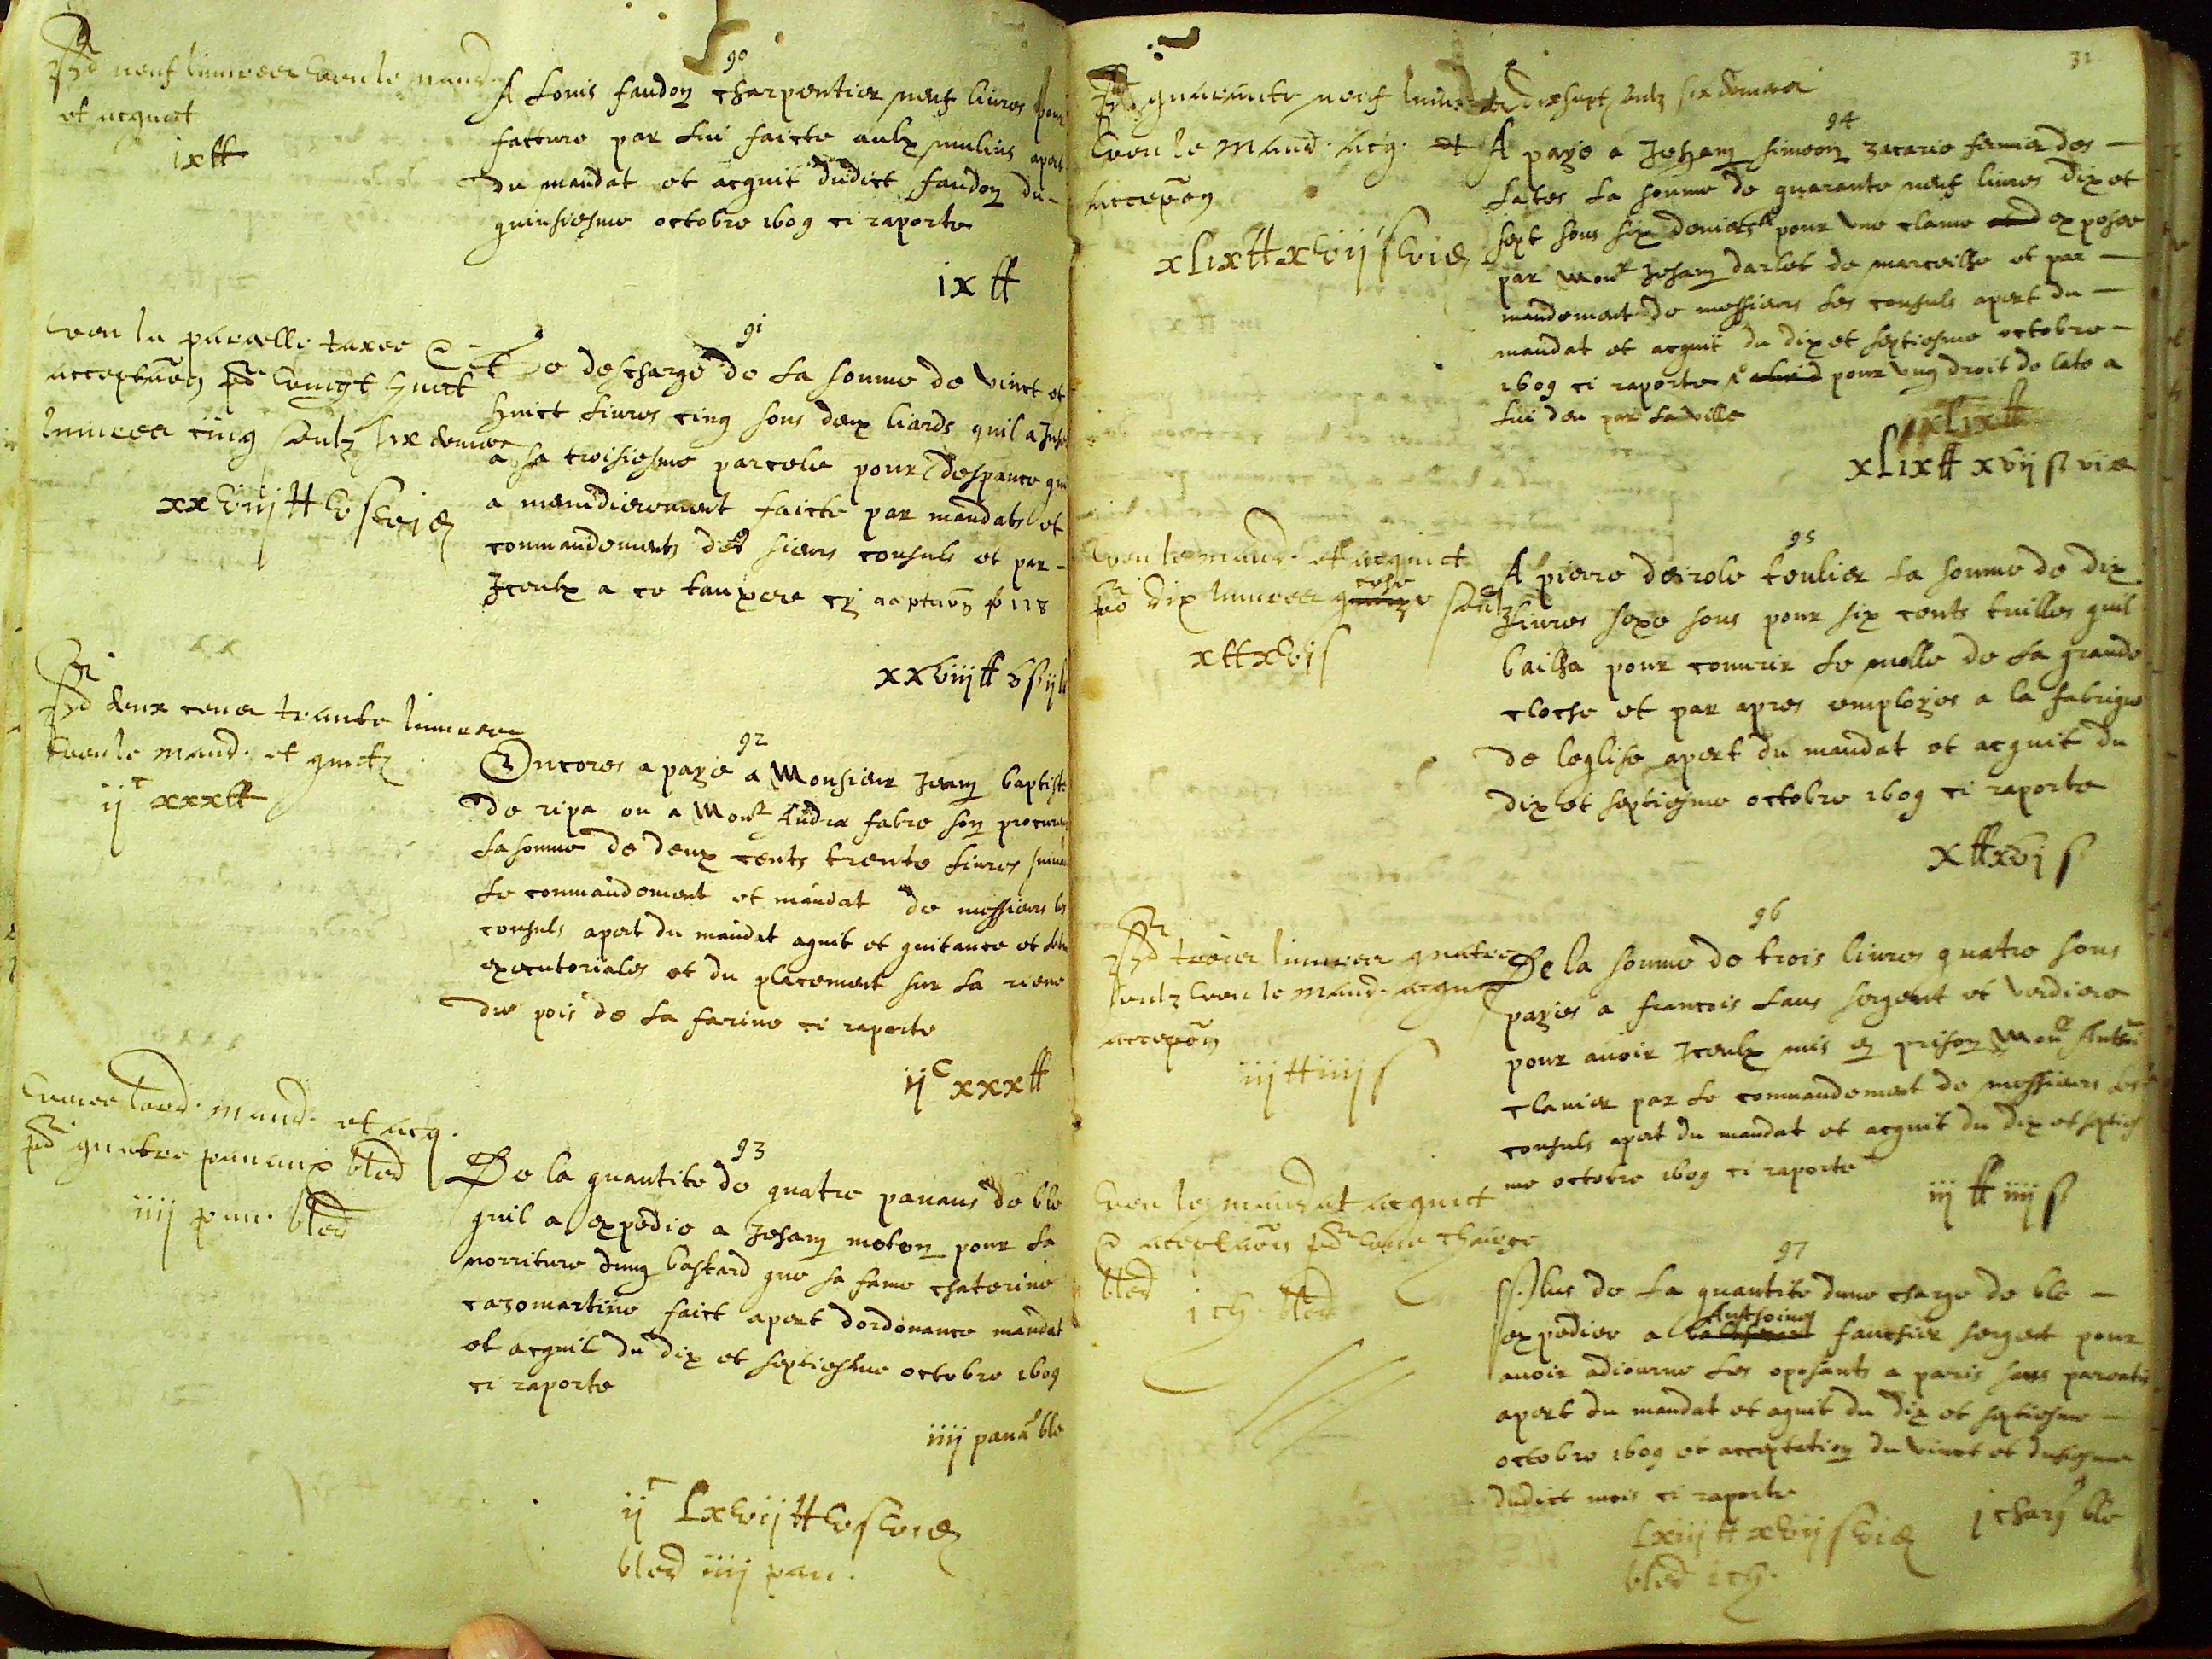 neuf livres veu le mand.
et acquict
ix ₶
90
A Louis faudon charpentier neuf livres pour
facture par lui faicte aulx mulins apert
du mandat et acquit dudict faudon du
quinsiesme octobre 1609 ci raporte
ix ₶
veu la parcelle taxee &
acceptaōn vingt huict
livres cinq soulz six deniers
xxviij ₶ v s vi d
91
Se descharge de la soume de vinct et
huict livres cinq sous deux liards quil a
a sa troisiesme parcele pour despance
a menudierement faicte par mandats et
commandements des sieurs consuls et par
Iceulx a ce
xxviij ₶ v s ij l
deux cens trante livres
veu le mand. et quict
ij c xxx ₶
92
Encores a paye a Monsieur Jean baptiste
de ripa ou a Monr Andre fabre son procureur
la soume de deux cents trente livres suivant
le commandement et mandat de messieurs les
consuls apert du mandat aquit et quitance et
executoriales et du placement sur la reve
du pois de la farine ci raporte
ij c xxx ₶
veu lord. mand. et acq.
quatre panaux bled
iiij pan. bled
93
De la quantite de quatre panaus de ble
quil a expedie a Jehan moton pour la
norriture dung bastard que sa fame chaterine
cazomartine faict apert dordonance mandat
et acquit du dix et septiesme octobre 1609
ci raporte
iiij pana ble
ij c lxvij ₶ v s vi d
bled iiij pan.
31
quarante neuf livres dixsept soulz six deniers
veu le mand. acq. et
accepōn
xlix ₶ xvij s vi d
94
A paye a Jehan simeon zacarie fermier des
lates la soume de quarante neuf livres dix et
sept sous six deniers pour une clame exposee
par Monr Jehan darlet de marceilhe et par
mandement de messieurs les consuls apert du
mandat et acquit du dix et septiesme octobre
1609 ci raporte pour ung droit de late a
lui deu par la ville
xlix ₶
xlix ₶ xvij s vi d
veu le mand. et acquict
dix livres seze soulz
x ₶ xvj s
95
A pierre teulier la soume de dix
livres seze sous pour six cents tuilles quil
bailha pour couvrir le molle de la grande
cloche et par apres employes a la fabrique
de leglise apert du mandat et acquit du
dix et septiesme octobre 1609 ci raporte
x ₶ xvj s
trois livres quatre
soulz veu le mand. acquict
accepōn
iij ₶ iiij s
96
De la soume de trois livres quatre sous
payes a francois laus sergent et verdiere
pour avoir Iceulx mis en prison Monr
clavier par le commandement de messieurs les
consuls apert du mandat et acquit du dix et septies
me octobre 1609 ci raporte
iij ₶ iiij s
veu le mandat acquict
& aceptaōn une charge
bled
j ch. bled
97
Plus de la quantite dune charge de ble
Anthoine
expediee a fauchier sergent pour
avoir adiourne les oposants a paris sans
apert du mandat et aquit du dix et septiesme
octobre 1609 et acceptation du vinct et
dudict mois ci raporte
j charg ble
lxiiij ₶ xvij s vi d
bled j ch.